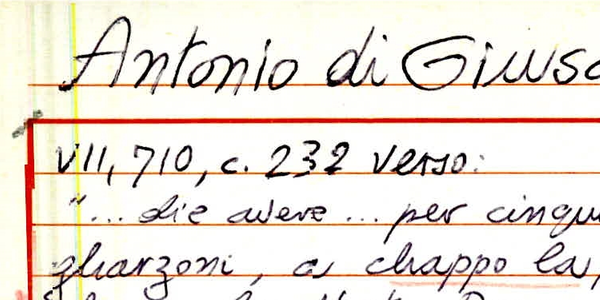 Antonio di Giusc
VII, 710, c. 232 verso:
"... die avere ... per cinqu
gharzoni, a chappo la,